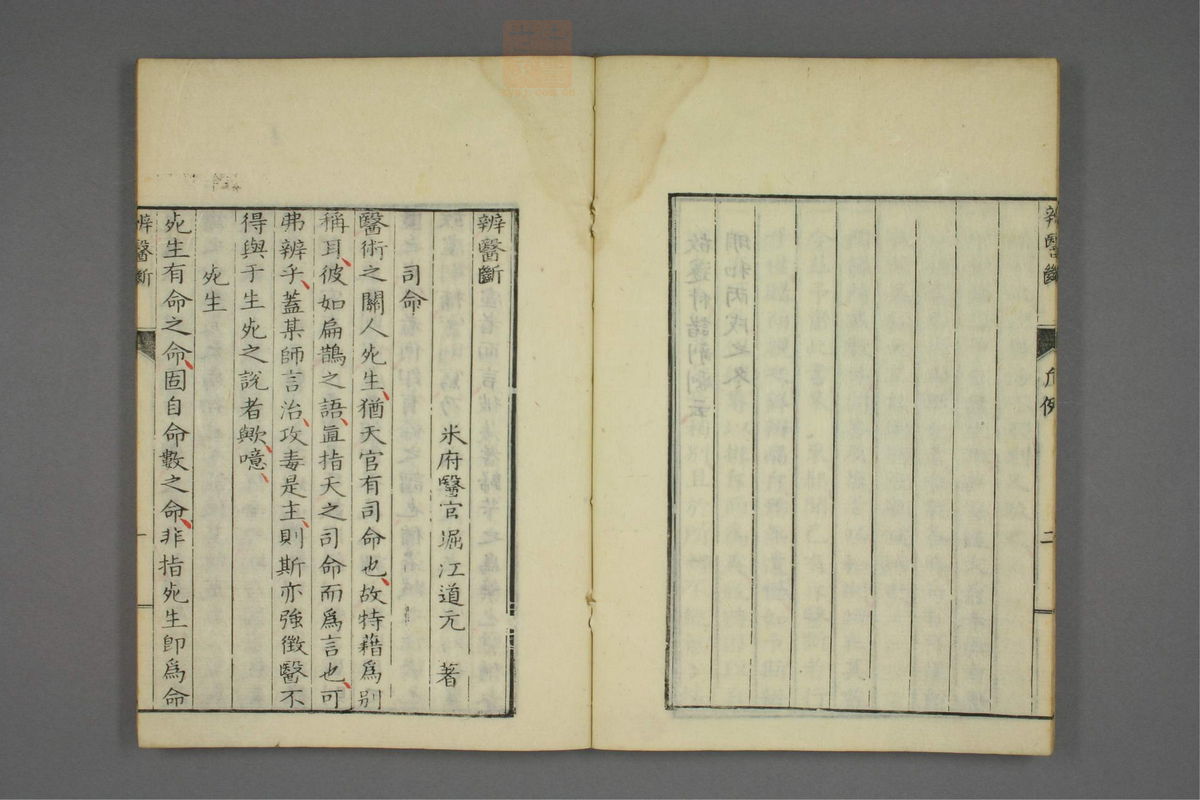 辨醫斷
凡例
二
辨醫斷
司命
米府醫官堀江道元 著
醫術之關人死生、猶天官有司命也、故特藉爲別
稱耳、彼如扁鵲之語、直指天之司命而爲言也、可
弗辨乎、蓋某師言治、攻毒是主、則斯亦強徵醫不
得與于生死之說者歟、噫、
死生
死生有命之命、固自命數之命、非指死生卽爲命
辨醫斷
一